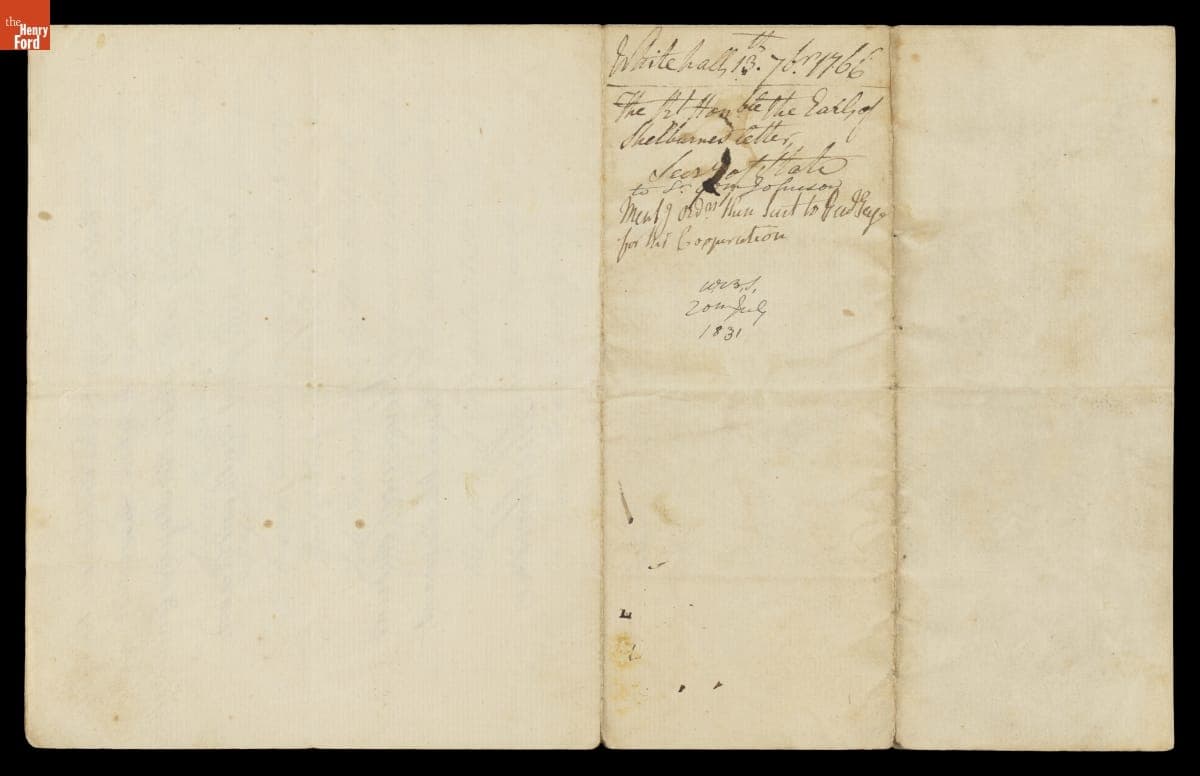 the
Henry
Ford
Whitehall, 13th. 7br. 1766
The Rt. Honble the Earl of
Shelburnes Letter,
Secry of State
to Sr. Wm Johnson
ordrs then sent to
for his Cooperation
20th July
1831